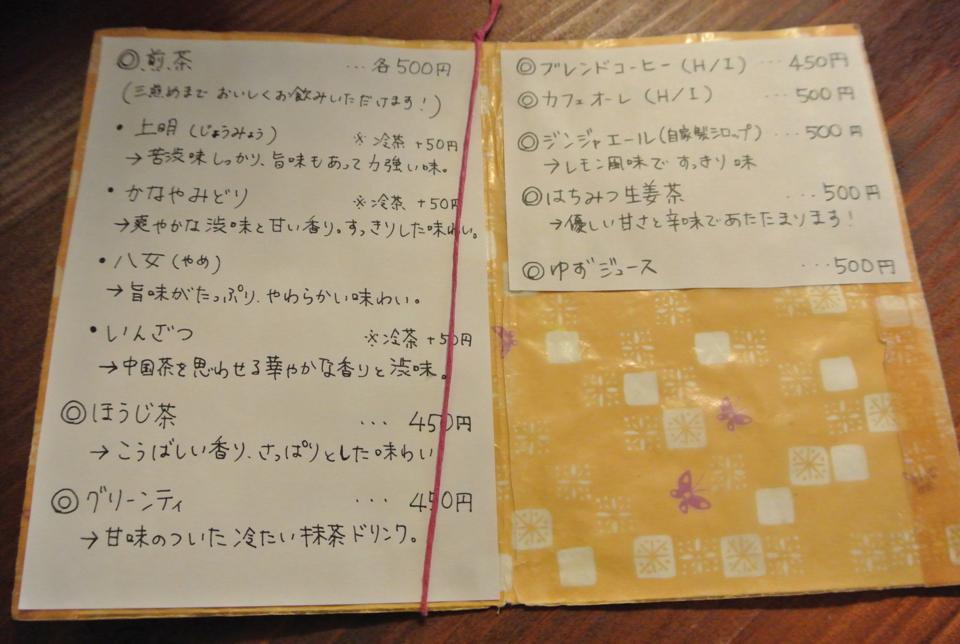 ◎煎茶 ...各500円
(三煎めまで おいしくお飲みいただけます!)
・上明(じょうみょう) ※冷茶 +50円
→苦渋味しっかり、旨味もあって力強い味。
・かなやみどり ※冷茶 +50円
→爽やかな渋味と甘い香り。すっきりした味わい。
・八女(やめ)
→旨味がたっぷり、やわらかい味わい。
・いんざつ ※冷茶 +50円
→中国茶を思わせる華やかな香りと渋味。
◎ほうじ茶 ... 450円
→こうばしい香り、さっぱりとした味わい
◎グリーンティ ... 450円
→甘味のついた冷たい抹茶ドリンク。
◎ブレンドコーヒー(H/I) ... 450円
◎カフェオーレ(H/I) ...500円
◎ジンジャエール(自家製シロップ) ...500円
→レモン風味ですっきり味
◎はちみつ生姜茶 ...500円
→優しい甘さと辛味であたたまります!
◎ゆずジュース ...500円